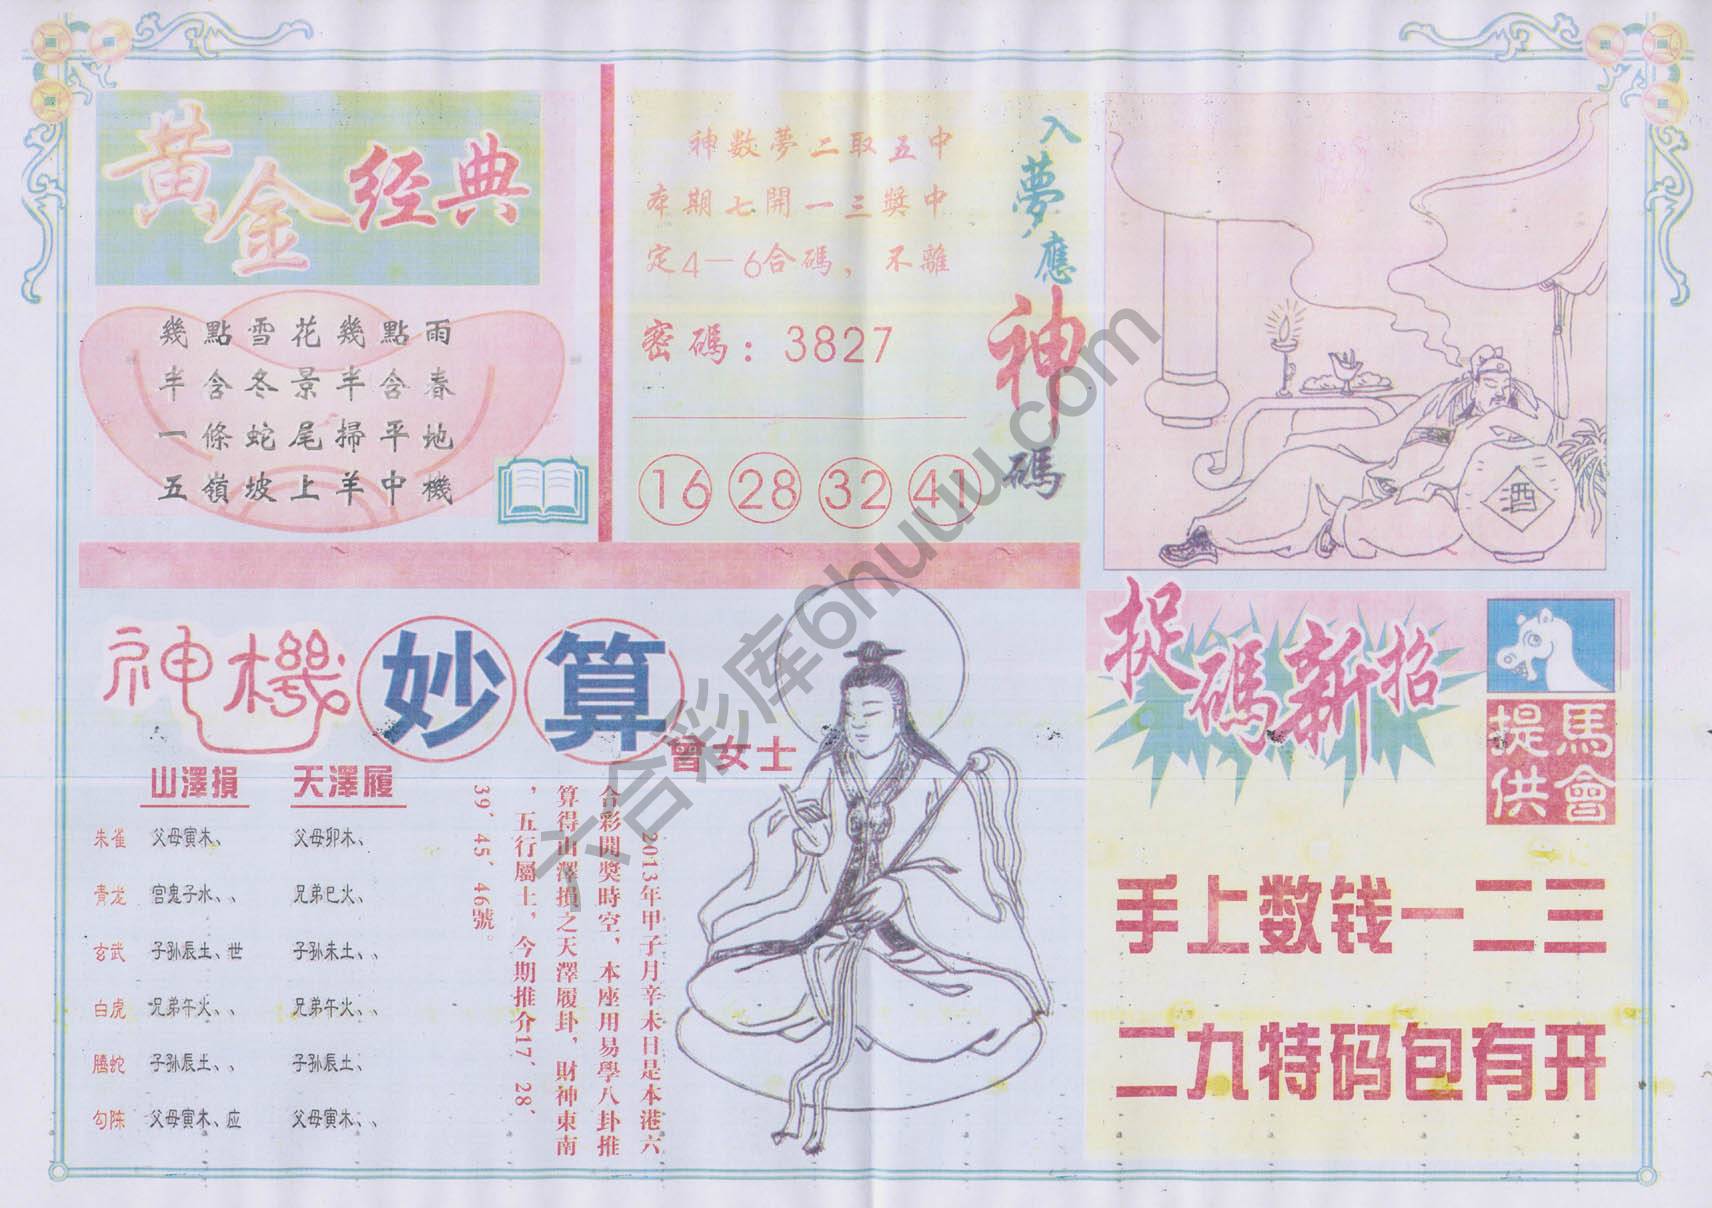 黃金经典
幾點雪花幾點雨
半含冬景半含春
一條蛇尾掃平地
五嶺坡上羊中機
神數夢二取五中
本期七開一三獎中
定4—6合碼，不離
密碼：3827
16 28 32 41
入夢應神碼
酒
神機妙算
曾女士
山澤損 天澤履
朱雀 父母寅木、 父母卯木、
青龙 官鬼子水、、 兄弟巳火、
玄武 子孙辰土、世 子孙未土、、
白虎 兄弟午火、、 兄弟午火、、
騰蛇 子孙辰土、、 子孙辰土、
勾陈 父母寅木、应 父母寅木、、
2013年甲子月辛未日是本港六
合彩開獎時空，本座用易學八卦推
算得山澤損之天澤履卦，財神東南
，五行屬土，今期推介17、28、
39、45、46號。
捉碼新招
馬會提供
手上数钱一二三
二九特码包有开
六合彩库6huuu.com